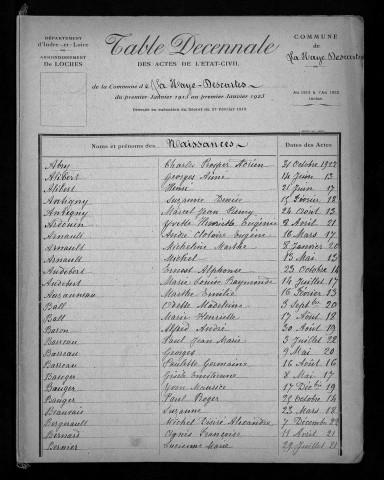 DÉPARTEMENT
d'Indre-et-Loire
ARRONDISSEMENT
DE LOCHES
Table Decennale
DES ACTES DE L'ÉTAT-CIVIL
COMMUNE
de
La Haye Descartes
de la Commune d La Haye-Descartes
du premier Janvier 1913 au premier Janvier 1923
Dressée en exécution du Décret du
An 1913 à l'An 1922
inclus.
Noms et prénoms des Naissances Dates des Actes
Abry Charles Prosper Adrien 31 Octobre 1922
Alibert Georges Aimé 14 Juin 13
Alibert Henri 21 Juin 17
Antigny Suzanne Denise 15 Février 18
Antigny Marcel Jean Remy 24 Août 13
Ardouin Yvette Henriette Eugénie 8 Août 21
Arnault André Clotaire Eugène 16 Mars 17
Arnault Micheline Marthe 8 Janvier 20
Arnault Michel 13 Mai 13
Audebert Ernest Alphonse 23 Octobre 14
Audebert Marie Louise Raymonde 14 Juillet 17
Auzanneau Marthe Emilie 16 Février 13
Ball Odette Madeleine 3 Septbre 20
Ball Marie Henriette 17 Août 18
Baron Alfred André 30 Août 19
Barreau Paul Jean Marie 2 Août 21
Barreau Georges 9 Mai 20
Barreau Paulette Germaine 16 Août 16
Gisèle 8 Mai 17
Bauger Yvon Maurice 17 Décbre 19
Bauger Paul Roger 25 Octobre 14
Beauvais Suzanne 23 Mars 18
Bergeault Michel Désiré Alexandre 7 Décembre 22
Bernard Agnès Françoise 11 Août 21
Bernier Lucienne Marie 29 Juillet 21